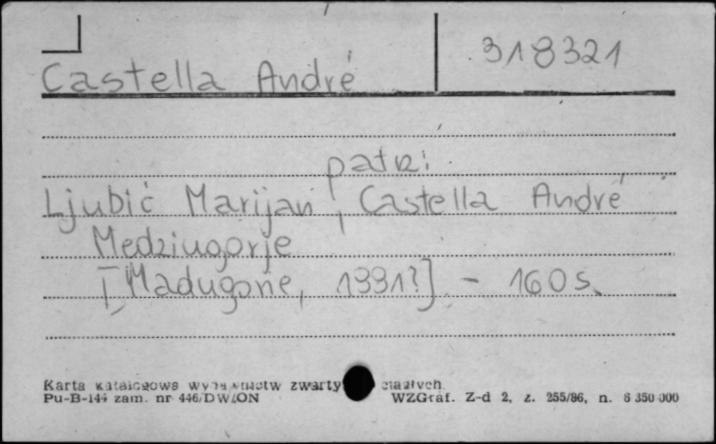 318321
Castella André
patrz:
Ljubić Marijan, Castella André
Medziugorje
[Madugone, 1991?] - 160 s.
Karta katalogowa wydawnictw zwartych
Pu-B-144 zam. nr 446/DW/ON WZGraf. Z-d 2, z. 255/86, n. 6 350 000